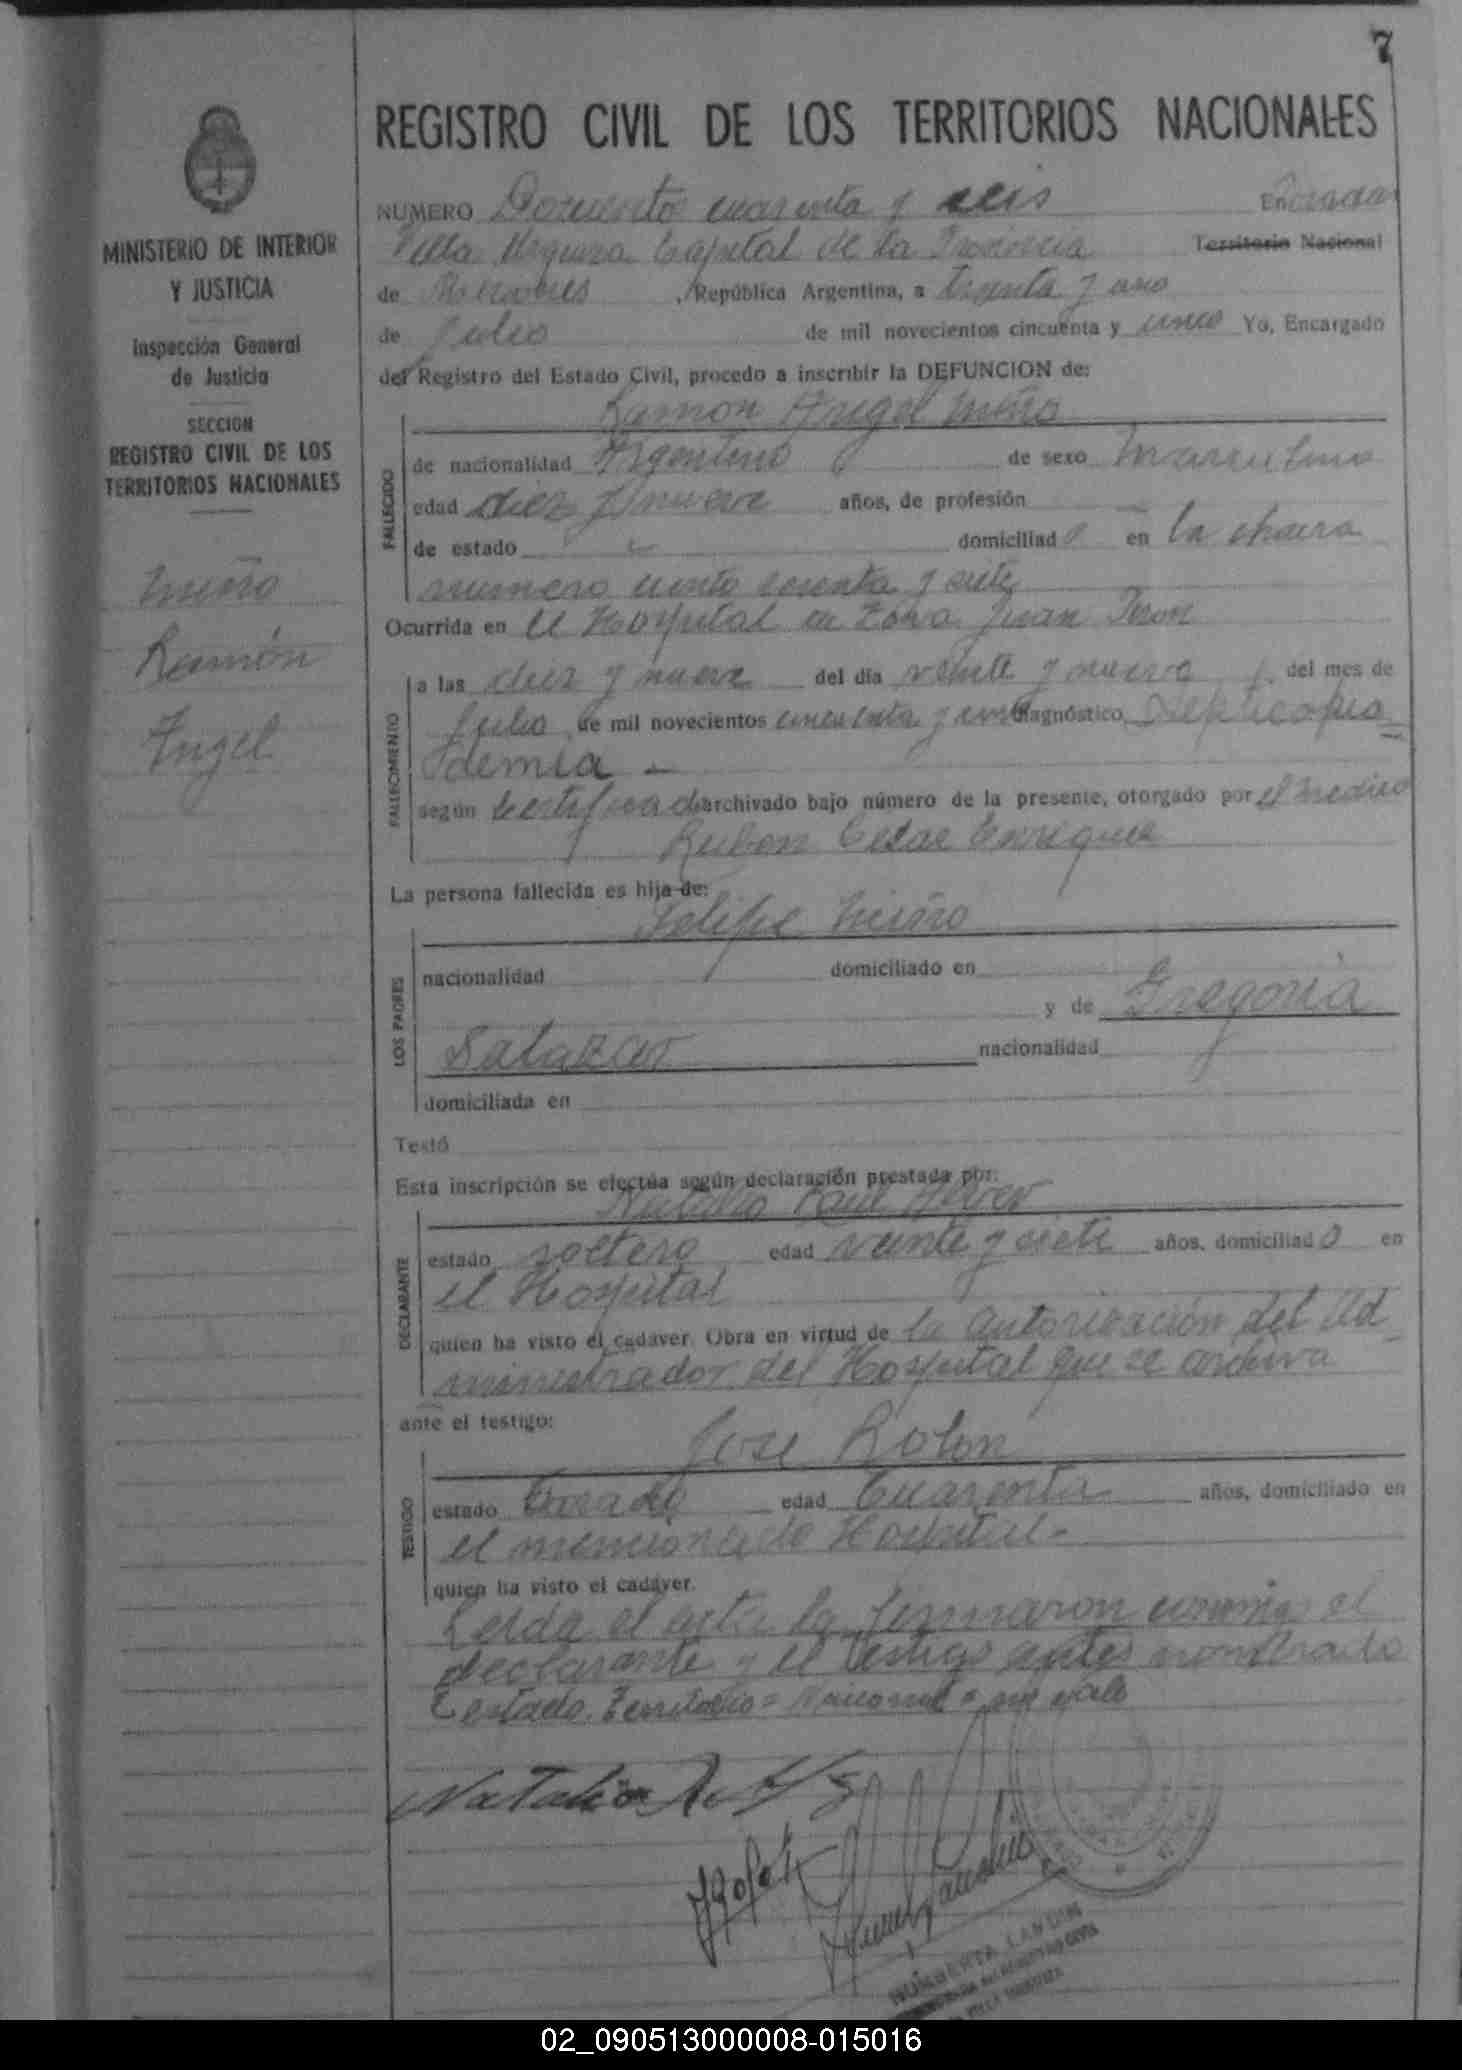 7
REGISTRO CIVIL DE LOS TERRITORIOS NACIONALES
MINISTERIO DE INTERIOR
Y JUSTICIA
Inspección General
de Justicia
SECCION
REGISTRO CIVIL DE LOS
TERRITORIOS NACIONALES
Miño
Ramón
Angel
NUMERO Doscientos cuarenta y seis En Posadas
Villa Urquiza Capital de la Provincia Territorio Nacional
de Misiones, República Argentina, a treinta y uno
de Julio de mil novecientos cincuenta y uno Yo, Encargado
del Registro del Estado Civil, procedo a inscribir la DEFUNCION de:
Ramon Angel Miño
FALLECIDO
de nacionalidad Argentino de sexo masculino
edad diez y nueve años, de profesión
de estado domiciliado en la chacra
numero ciento y siete
Ocurrida en el Hospital Juan Peron
FALLECIMIENTO
a las diez y nueve del día veinte y nueve del mes de
Julio de mil novecientos cincuenta y uno diagnóstico, Septicopio
demia -
según certificado archivado bajo número de la presente, otorgado por el medico
Ruben Cesar Enriquez
La persona fallecida es hija de:
Felipe Miño
LOS PADRES
nacionalidad domiciliado en
y de Gregoria
Salazar nacionalidad
domiciliada en
Testó
Esta inscripción se efectúa según declaración prestada por:
Natalio Raul
DECLARANTE
estado soltero edad veinte y siete años, domiciliado en
el Hospital
quien ha visto el cadaver. Obra en virtud de la autorización del Ad
ministrador del Hospital que se archiva
ante el testigo:
Jose Rolon
TESTIGO
estado Casado edad Cuarenta años, domiciliado en
el mencionado Hospital-
quien ha visto el cadáver.
Leida el acta la firmaron conmigo el
declarante y el testigo antes nombrado
Testado. Territorio = Nacional = no vale
HUMBERTA LANDIN
VILLA URQUIZA
02_090513000008-015016